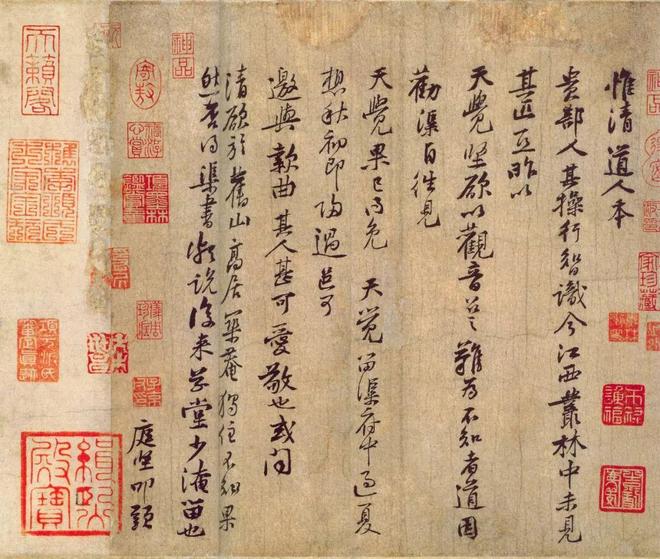 惟清道人本
貴部人其操行智識今江西叢林中未見
其匹亞昨以
天覺堅欲以觀音召之難為不知者道因
勸渠自往見
天覺果已得免 天覺留渠府中過夏
想秋初即歸過邑可
邀與款曲其人甚可愛敬也或聞
清欲於舊山高居築菴獨住不知果
然否得渠書頗說後來草堂少淹留也
庭堅叩頭
神品
天籟閣
緝熙殿寶